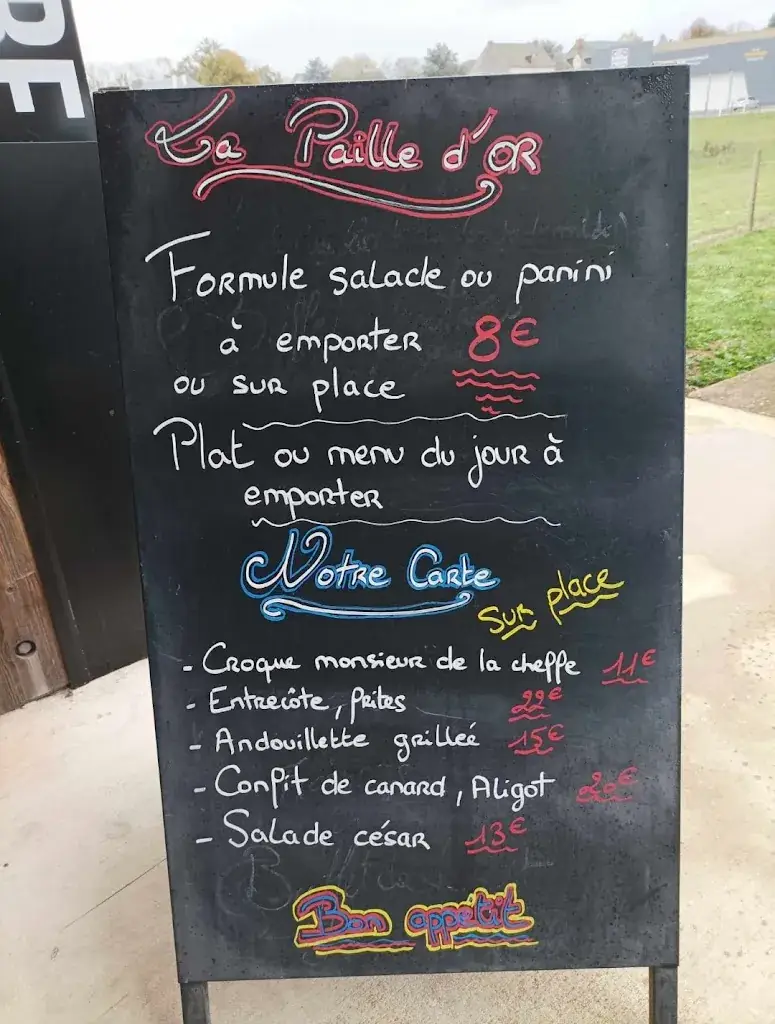 La Paille d'OR
Formule salade ou panini
à emporter 8€
ou sur place
Plat ou menu du jour à
emporter
Notre Carte
sur place
- Croque monsieur de la cheffe 11€
- Entrecôte, frites 22€
- Andouillette grilleé 15€
- Confit de canard, Aligot 20€
- Salade césar 13€
Bon appétit